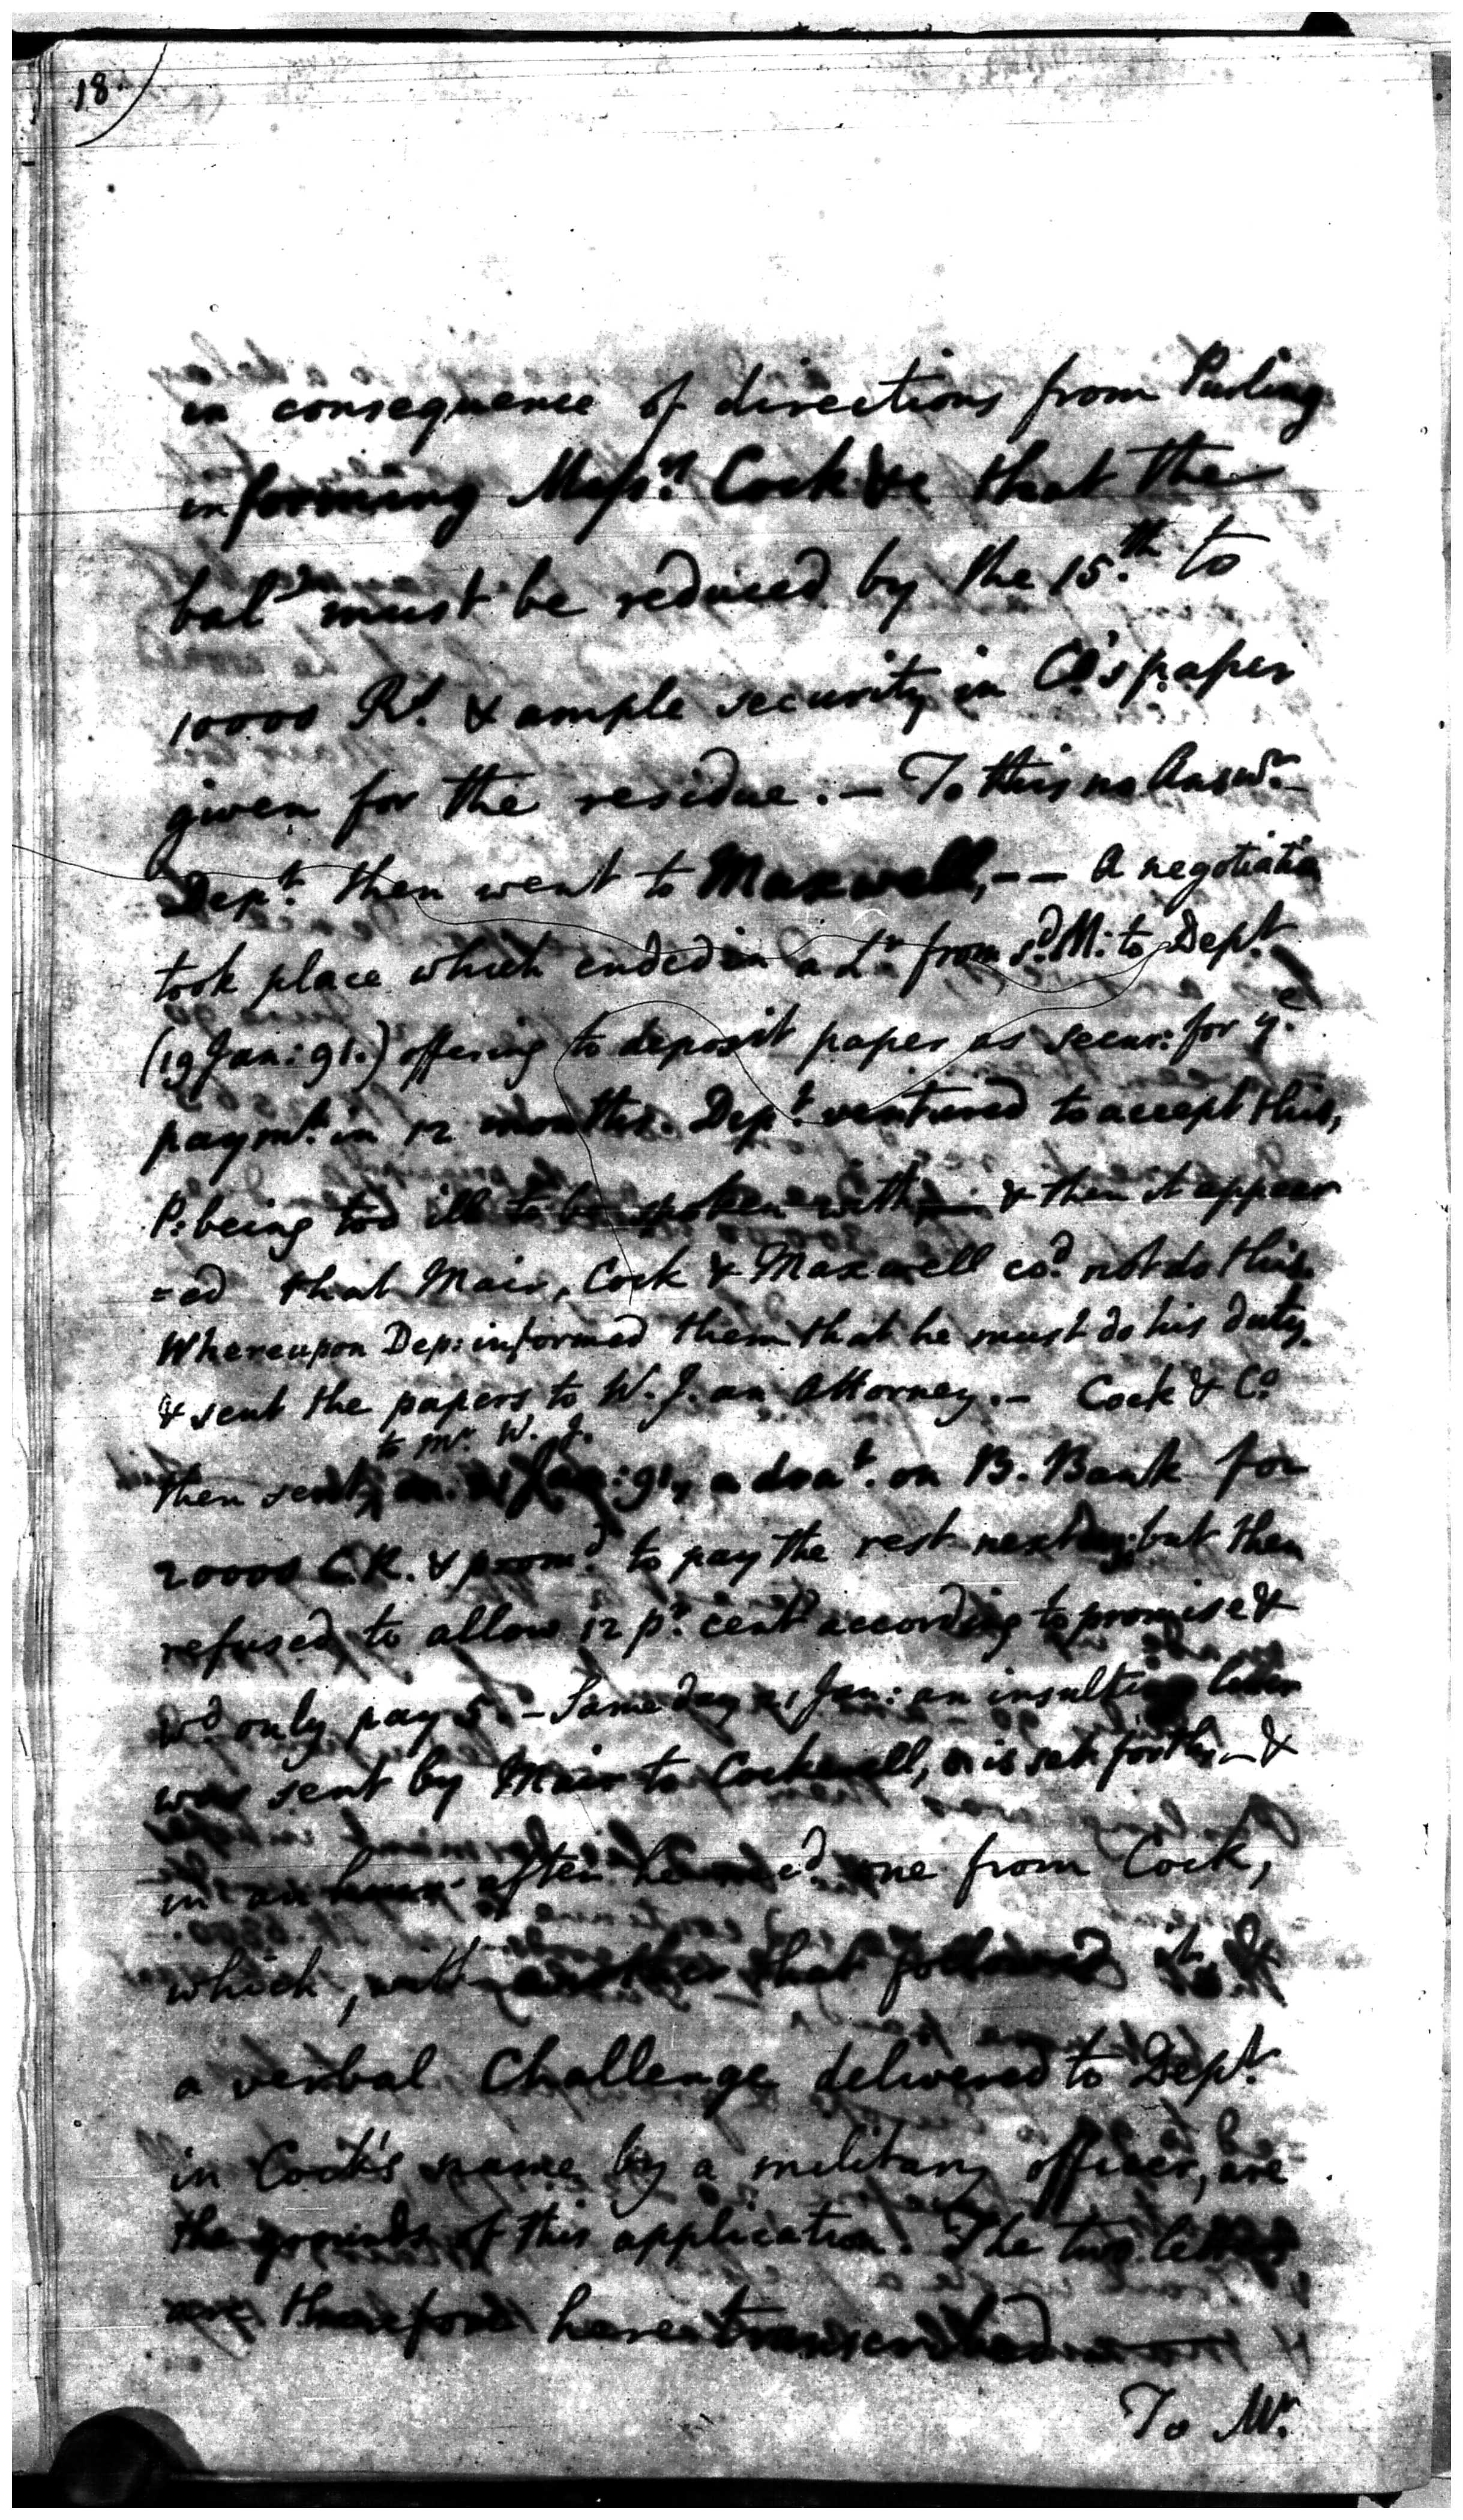 18.
in consequence of directions from Purling
informing Messrs. Cock &c that the
balce must be reduced by the 15.th to
10000 Rs. & ample security in Co's paper
given for the residue. — To this no Answr.
Dept. then went to Maxwell, — — A negotiation
took place which ended in a Lr. from sd. M: to Dept.
(19 Jan: 91.) offering to deposit paper as secur: for ye.
paymt. in 12 months. Dept. ventured to accept this,
P: being too ill to be spoken with; — & then it appear
=ed that Mair, Cock & Maxwell cod. not do this.
Whereupon Dep: informed them that he must do his duty,
& sent the papers to W. J. an Attorney. — Cock & Co
to Mr. W. J.
then sent, Jan: 91, a drat. on B. Bank for
20000 C.R. & promd. to pay the rest next day; but then
refused to allow 12 pr. cent according to promise &
wd. only pay 5. — Same day 21 Jan: an insulting letter
was sent by Mair to Cockerell, is set forth, — &
in an hour after he recd. one from Cock,
which, with another that followed it, &
a verbal Challenge delivered to Dept.
in Cock's name by a military officer, are
the grounds of this application. The two letters
are therefore here transcribed —
To Mr.